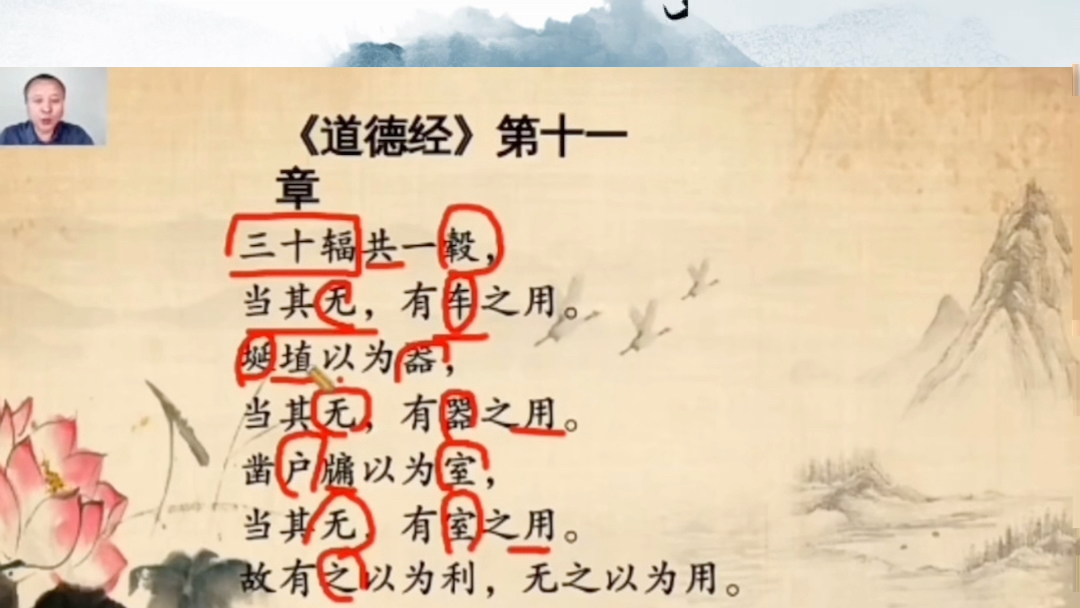 《道德经》第十一
章
三十辐共一毂，
当其无，有车之用。
埏埴以为器，
当其无，有器之用。
凿户牖以为室，
当其无，有室之用。
故有之以为利，无之以为用。